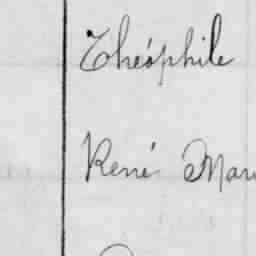 Théophile
René Mari